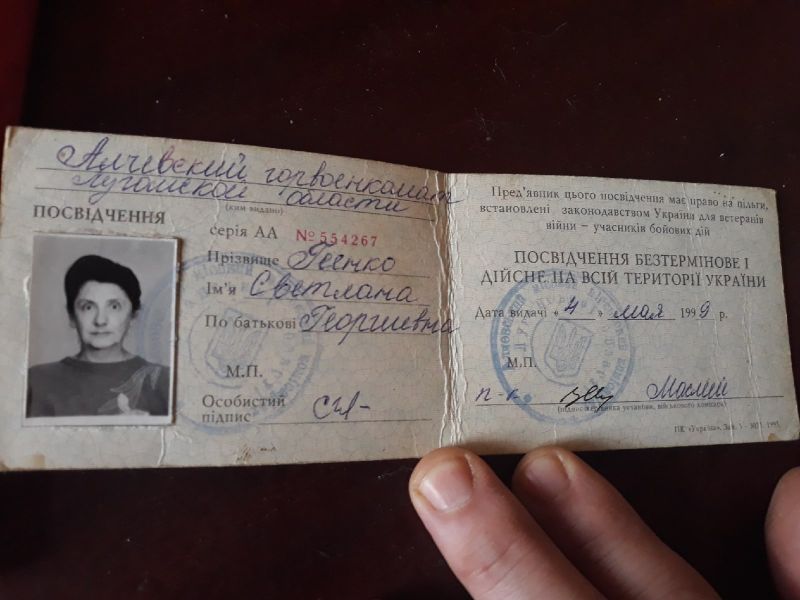 Алчевский горвоенкомат
Луганской области
(ким видано)
ПОСВІДЧЕННЯ
серія АА № 554267
Прізвище
Ім'я Светлана
По батькові Георгиевна
М.П.
Особистий
підпис
Пред'явник цього посвідчення має право на пільги,
встановлені законодавством України для ветеранів
війни – учасників бойових дій
ПОСВІДЧЕННЯ БЕЗТЕРМІНОВЕ І
ДІЙСНЕ НА ВСІЙ ТЕРИТОРІЇ УКРАЇНИ
Дата видачі « 4 » мая 1999 р.
М.П.
п-к Маслий
(підпис керівника установи, військового комісара)
ПК «Україна». Зам.